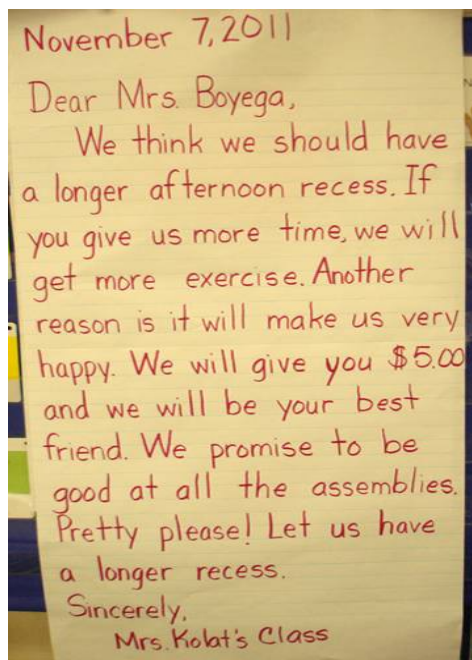 November 7, 2011
Dear Mrs. Boyega,
We think we should have
a longer afternoon recess. If
you give us more time, we will
get more exercise. Another
reason is it will make us very
happy. We will give you $5.00
and we will be your best
friend. We promise to be
good at all the assemblies.
Pretty please! Let us have
a longer recess.
Sincerely,
Mrs. Kolat's Class